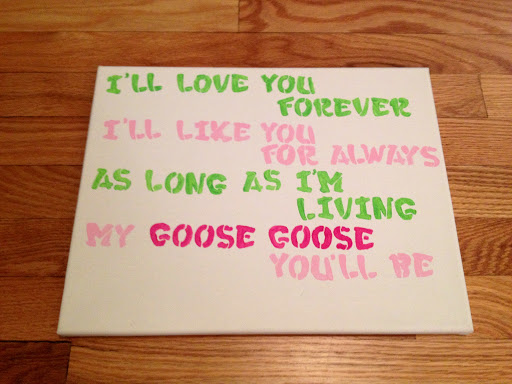 I'LL LOVE YOU
FOREVER
I'LL LIKE YOU
FOR ALWAYS
AS LONG AS I'M
LIVING
MY GOOSE GOOSE
YOU'LL BE